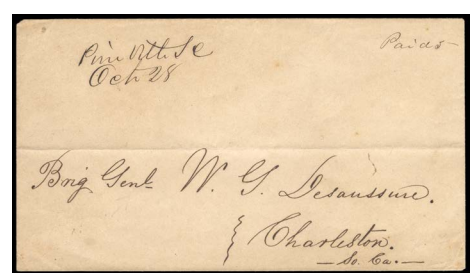 Pine Ville S C
Oct 28
Paid 5
Brig Genl W. G. Desaussure.
Charleston.
So. Ca.